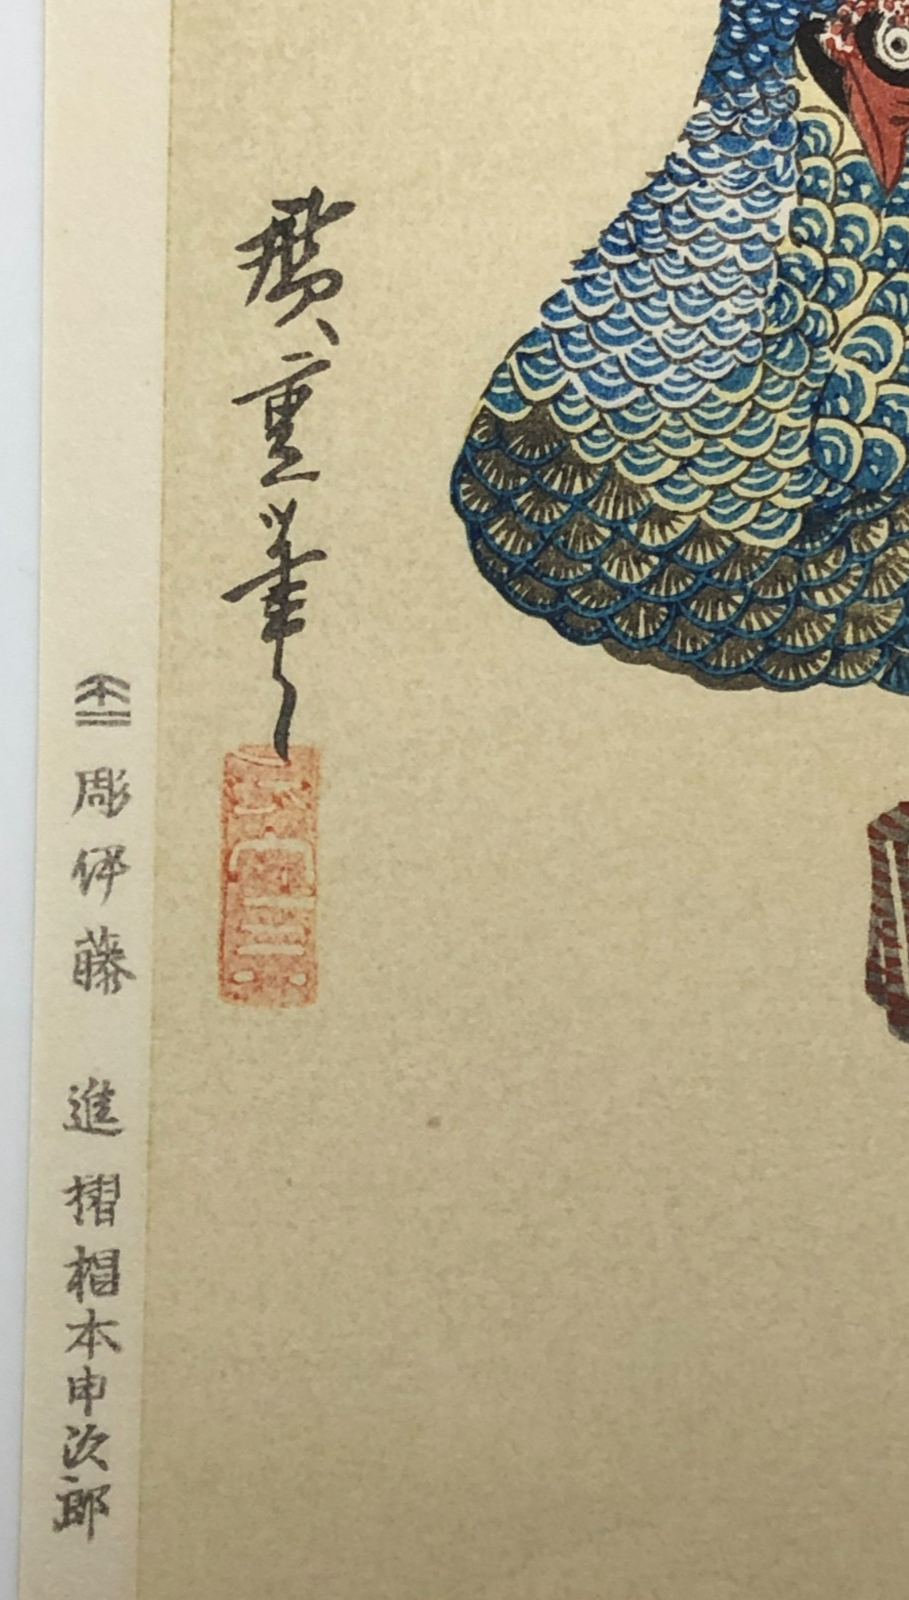 廣重筆
彫伊藤進 摺相本申次郎